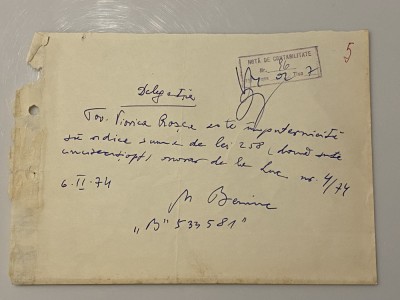 5
NOTĂ DE CONTABILITATE
Nr. 86
Delegație
Tov. Viorica Roșca este împuternicită
să ridice suma de lei 258 (două sute
cincizeciopt) onorar de la Luc. nr. 4/74
6.II.74
"B" 533581"